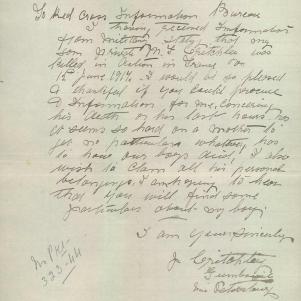 To Red Cross Information Bureau
I having received Information
from military authy that my
Son Private M. J. Critchley was
killed in Action in France on
12 June 1917. I would be so pleased
& thankful if you could procure
a Information, for me, concerning
his death or his last hours, has
it seems so hard on a mother to
get no particulars whatever, has
to how our boys died, I also
wish to claim all his personal
belongings. I am hoping to hear
that you will find some
particulars about my boy.
I am Yours Sincerely
J Critchley